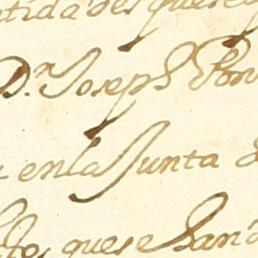 tidades que se
D.r Joseph Pon
en la Junta
que se han